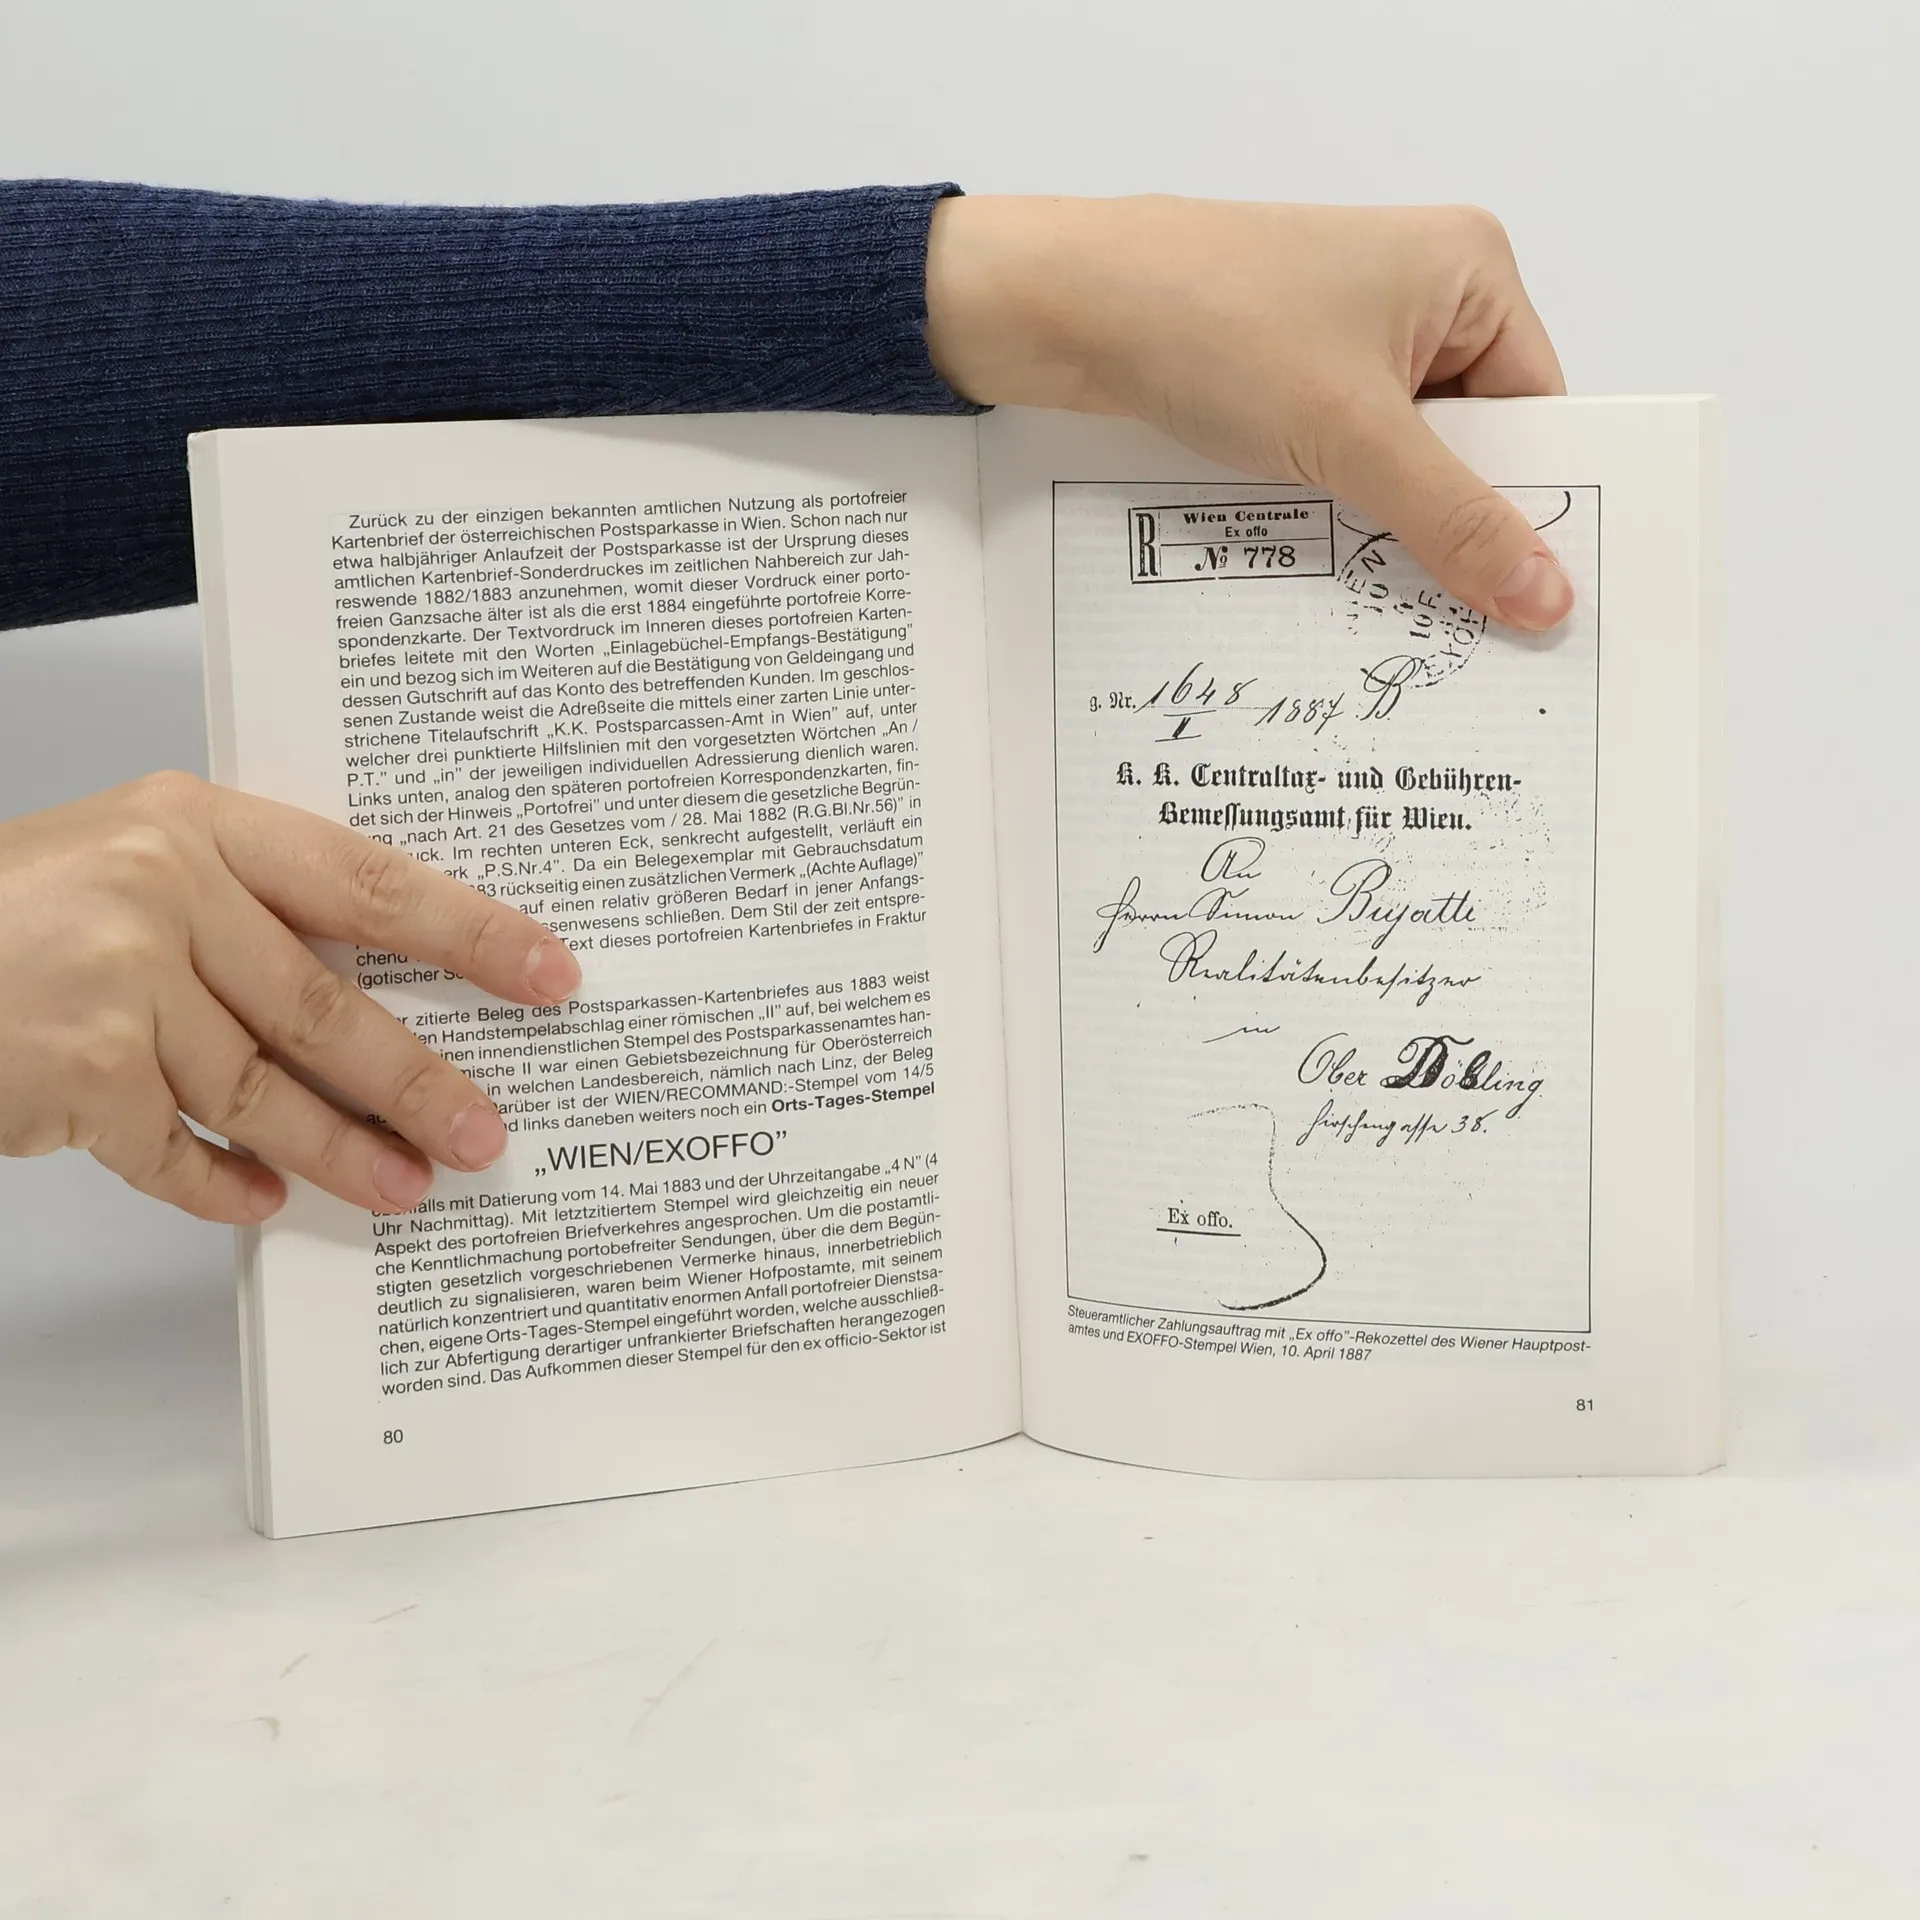 Zurück zu der einzigen bekannten amtlichen Nutzung als portofreier
Kartenbrief der österreichischen Postsparkasse in Wien. Schon nach nur
etwa halbjähriger Anlaufzeit der Postsparkasse ist der Ursprung dieses
amtlichen Kartenbrief-Sonderdruckes im zeitlichen Nahbereich zur Jah-
reswende 1882/1883 anzunehmen, womit dieser Vordruck einer porto-
freien Ganzsache älter ist als die erst 1884 eingeführte portofreie Korre-
spondenzkarte. Der Textvordruck im Inneren dieses portofreien Karten-
briefes leitete mit den Worten „Einlagebüchel-Empfangs-Bestätigung”
ein und bezog sich im Weiteren auf die Bestätigung von Geldeingang und
dessen Gutschrift auf das Konto des betreffenden Kunden. Im geschlos-
senen Zustande weist die Adreßseite die mittels einer zarten Linie unter-
strichene Titelaufschrift „K.K. Postsparcassen-Amt in Wien” auf, unter
welcher drei punktierte Hilfslinien mit den vorgesetzten Wörtchen „An /
P.T.” und „in” der jeweiligen individuellen Adressierung dienlich waren.
Links unten, analog den späteren portofreien Korrespondenzkarten, fin-
det sich der Hinweis „Portofrei” und unter diesem die gesetzliche Begrün-
„nach Art. 21 des Gesetzes vom / 28. Mai 1882 (R.G.Bl.Nr.56)” in
Im rechten unteren Eck, senkrecht aufgestellt, verläuft ein
„P.S.Nr.4”. Da ein Belegexemplar mit Gebrauchsdatum
rückseitig einen zusätzlichen Vermerk „(Achte Auflage)”
auf einen relativ größeren Bedarf in jener Anfangs-
schließen. Dem Stil der zeit entspre-
chend Text dieses portofreien Kartenbriefes in Fraktur
(gotischer
zitierte Beleg des Postsparkassen-Kartenbriefes aus 1883 weist
Handstempelabschlag einer römischen „II” auf, bei welchem es
innendienstlichen Stempel des Postsparkassenamtes han-
II war einen Gebietsbezeichnung für Oberösterreich
in welchen Landesbereich, nämlich nach Linz, der Beleg
ist der WIEN/RECOMMAND:-Stempel vom 14/5
links daneben weiters noch ein Orts-Tages-Stempel
„WIEN/EXOFFO”
mit Datierung vom 14. Mai 1883 und der Uhrzeitangabe „4 N” (4
Uhr Nachmittag). Mit letztzitiertem Stempel wird gleichzeitig ein neuer
Aspekt des portofreien Briefverkehres angesprochen. Um die postamtli-
che Kenntlichmachung portobefreiter Sendungen, über die dem Begün-
stigten gesetzlich vorgeschriebenen Vermerke hinaus, innerbetrieblich
deutlich zu signalisieren, waren beim Wiener Hofpostamte, mit seinem
natürlich konzentriert und quantitativ enormen Anfall portofreier Dienstsa-
chen, eigene Orts-Tages-Stempel eingeführt worden, welche ausschließ-
lich zur Abfertigung derartiger unfrankierter Briefschaften herangezogen
worden sind. Das Aufkommen dieser Stempel für den ex officio-Sektor ist
80
R
Wien Centrale
Ex offo
№ 778
g. Nr. 1648 1887 B
II
K. K. Centraltax- und Gebühren-
Bemessungsamt für Wien.
An
Herrn Simon Bujatti
Realitätenbesitzer
in
Ober Döbling
Hirschengasse 38.
Ex offo.
Steueramtlicher Zahlungsauftrag mit „Ex offo”-Rekozettel des Wiener Hauptpost-
amtes und EXOFFO-Stempel Wien, 10. April 1887
81